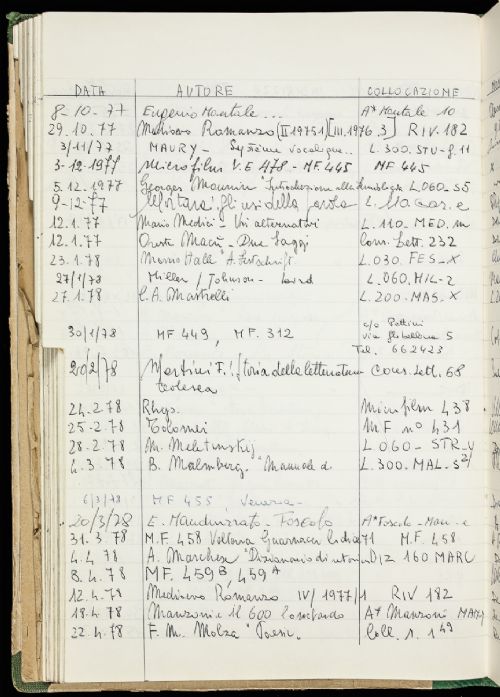 DATA AUTORE COLLOCAZIONE
8-10-77 Eugenio Montale... A* Montale 10
29.10.77 Medioevo Romanzo (II 1975 1) [III.1976.3] RIV. 182
3/11/77 MAURY - Système vocalique.. L.300.STU-g.11
3-12-1977 Microfilm V.E 478 - MF.445 MF 445
5.12.1977 Georges Mounin Introduzione alla L060-S5
9-12-77 gli usi della parola L.
12.1.77 Mario Medici - Usi alternativi L.110-MED.m
12.1.77 Oreste Macrì - Due Saggi Cons. Lett. 232
23.1.78 Morris Halle "A Festschrift L.030.FES-X
27/1/78 Miller / Johnson-Laird L.060.MIL-2
27.1.78 C.A. Mastrelli L.200.MAS-X
30/1/78 MF 449, MF. 312 c/o Pettini
via 5
Tel. 662423
20/2/78 Martini F. "Storia della letteratura Cons. Lett. 68
tedesca
24.2.78 Rhys. Microfilm 438
25-2-78 Tolomei MF n° 431
28.2.78 M. Meletinskij L060-STR-y
4.3.78 B. Malmberg. "Manuale d. L.300-MAL-S2/
6/3/78 MF 455, Venezia-
20/3/78 E. Mandruzzato - Foscolo A* Foscolo-Man-e
31.3.78 M.F. 458 Volterra Guarnacci M.F. 458
4.4.78 A. Marchese "Dizionario di retorica DIZ 160 MARC
8.4.78 MF. 459B, 459A
12.4.78 Medioevo Romanzo IV/1977/1 RIV 182
18.4.78 Manzoni e il 600 lombardo A* Manzoni
22.4.78 F. M. Molza "Poesie. Coll. 1.149